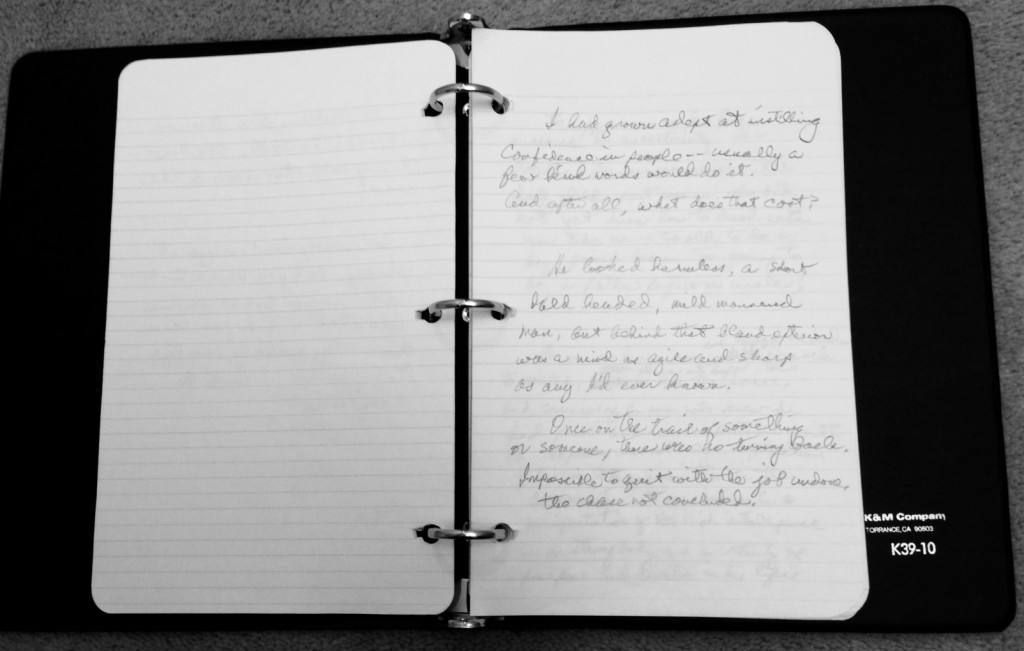 I had grown adept at instilling
Confidence in people -- usually a
few kind words would do it.
And after all, what does that cost?
He looked harmless, a short
bald headed, mild mannered
man, but behind that bland exterior
was a mind as agile and sharp
as any I'd ever known.
Once on the trail of something
or someone, there was no turning back.
Impossible to quit with the job undone,
the chase not concluded.
K&M Company
TORRANCE, CA 90503
K39-10